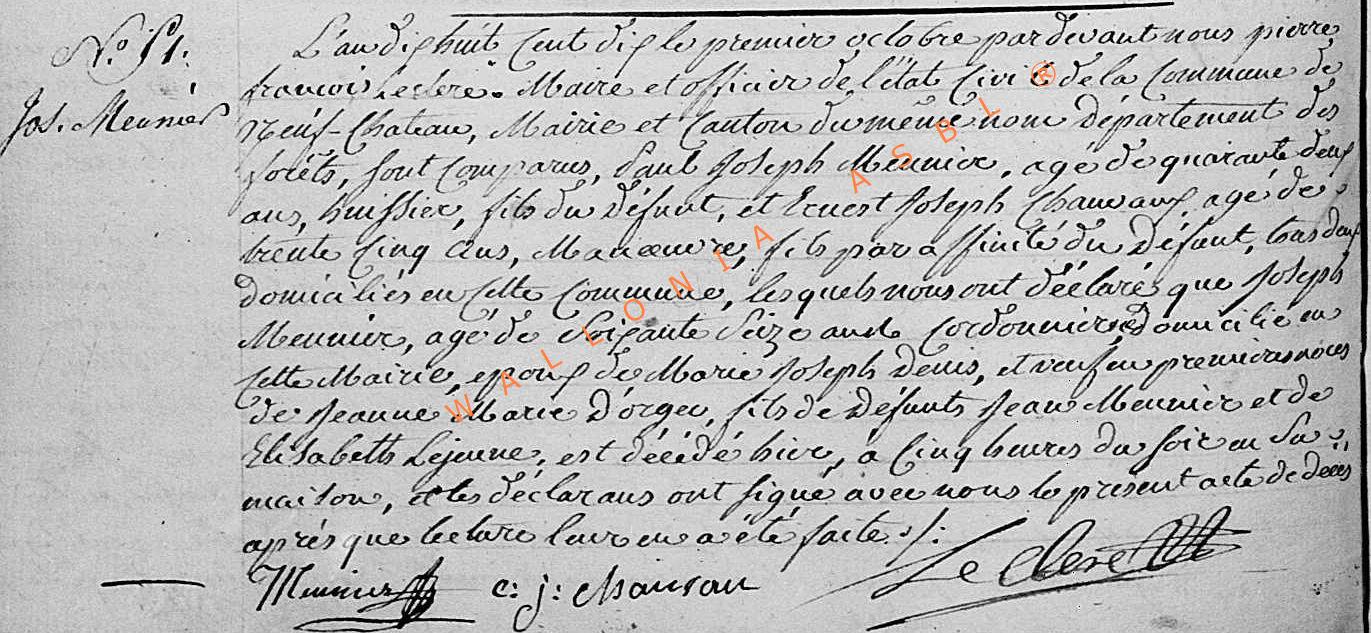 N.° 51.
Jos. Meunier
L'an dix huit Cent dix le premier octobre par devant nous pierre
françois Leclere. Maire et officier de l'état Civil de la Commune de
Neuf-Chateau, Mairie et Canton du même nom département des
forêts, sont Comparus, Paul Joseph Meunier, agé de quarante deux
ans, huissier, fils du Défunt, et Ernest Joseph Chauvaux agé de
trente Cinq ans, Manœuvre, fils par affinité du Défunt, tous deux
domiciliés en Cette Commune, lesquels nous ont déclaré que Joseph
Meunier, agé de Soixante Seize ans Cordonnier, Domicilié en
Cette Mairie, epoux de Marie Joseph Denis, et veuf en premieres noces
de Jeanne Marie D'orgeo, fils de Défunts Jean Meunier et de
Elisabeth Lejeune, est décédé hier, a Cinq heures du soir en Sa
maison, et les déclarans ont signé avec nous le present acte de decès
après que lecture leur en a été faite ./.
Meunier e: j: chauvau Leclere
WALLONIA ASBL ®